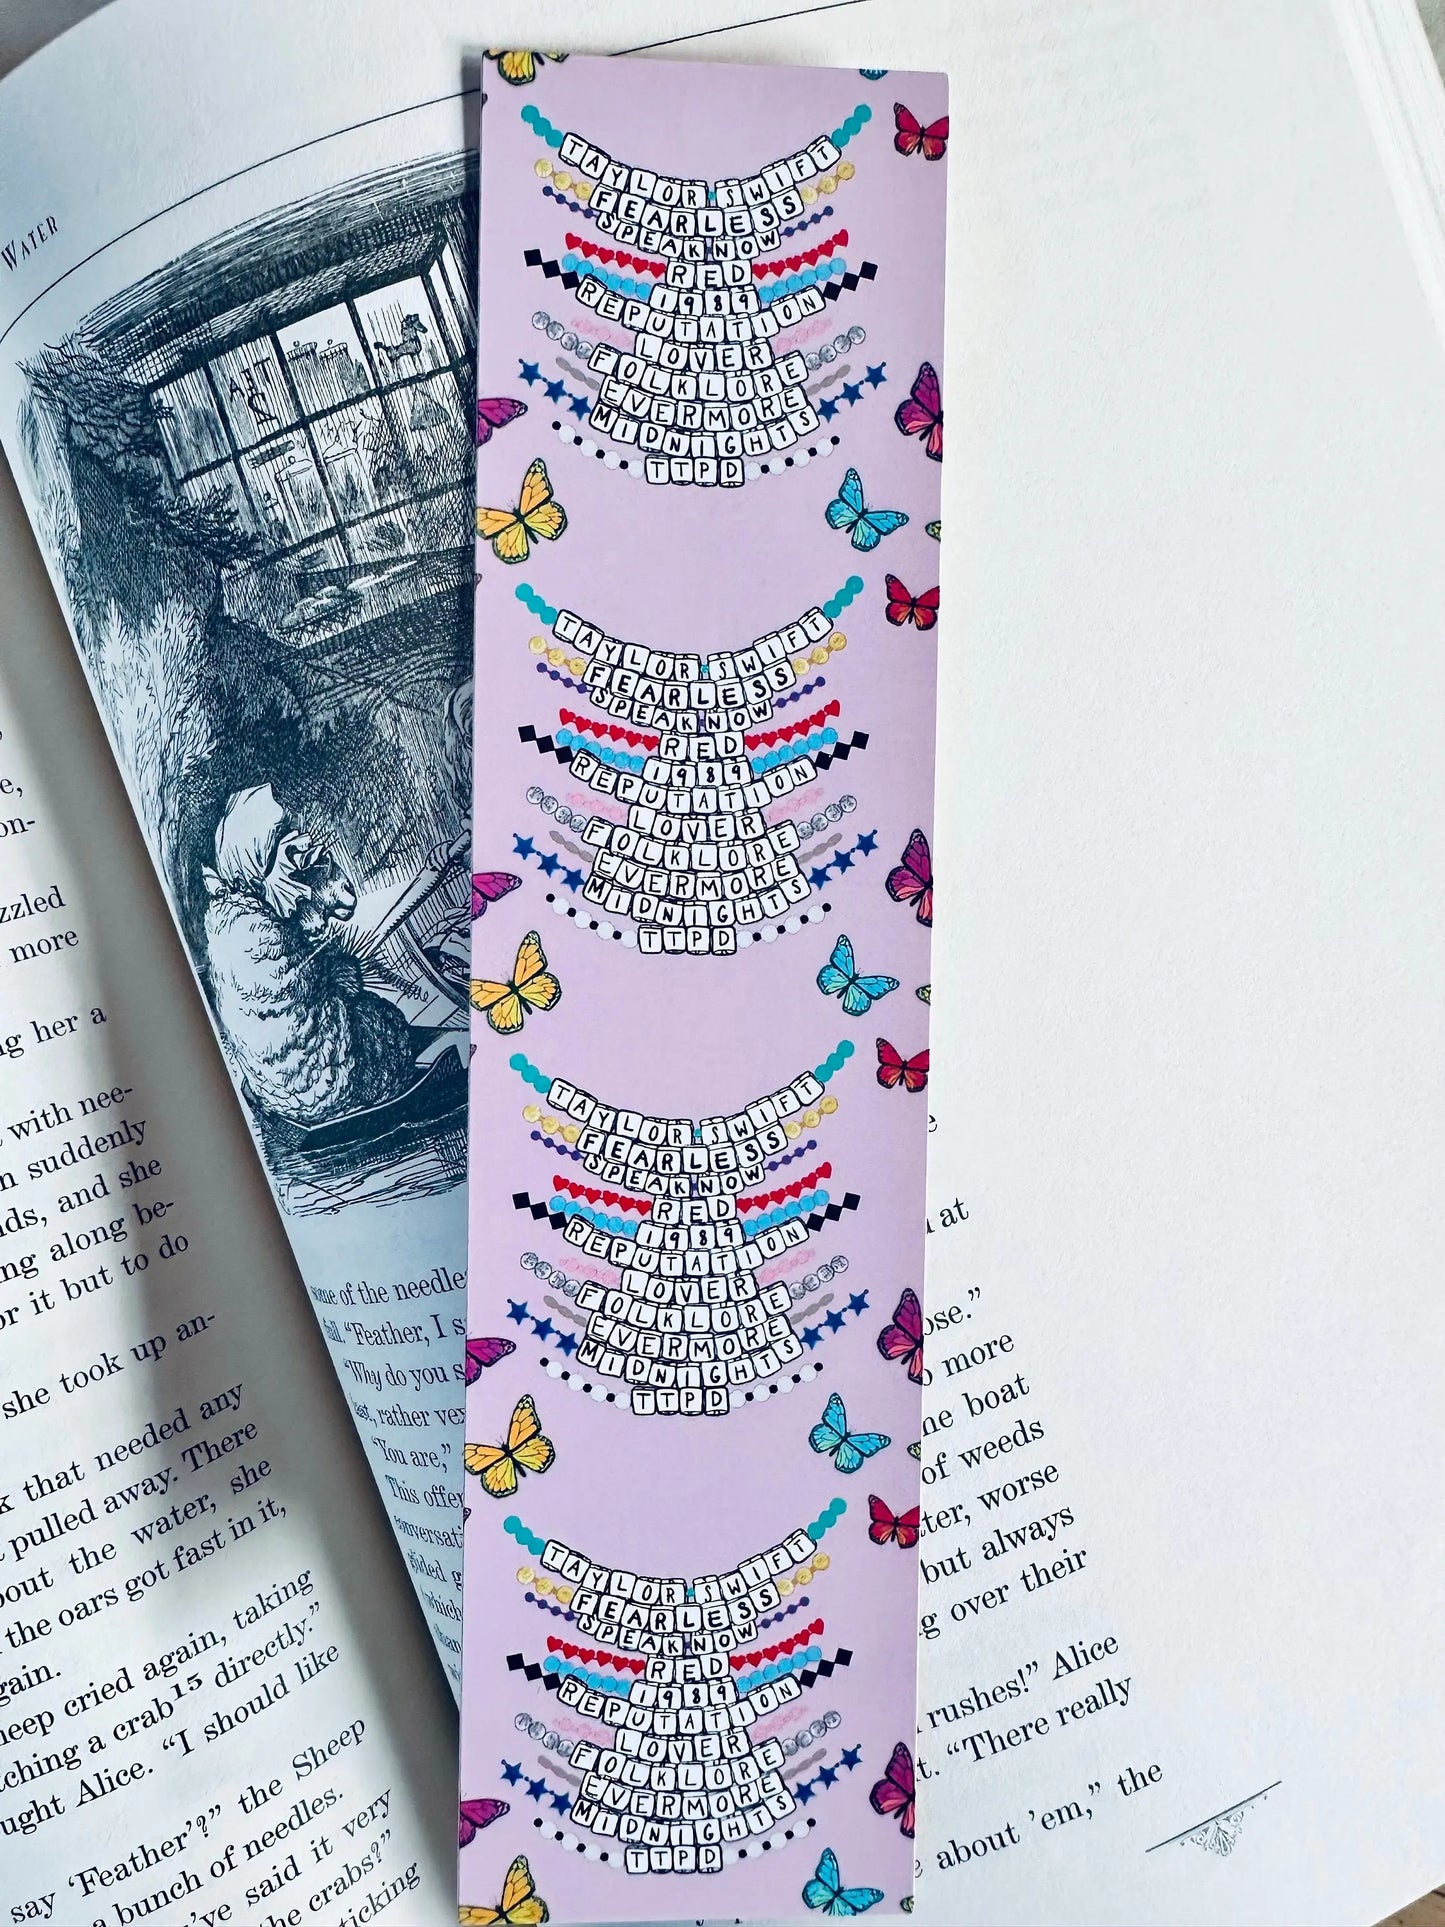 WATER
TAYLOR SWIFT
FEARLESS
SPEAK NOW
RED
1989
REPUTATION
LOVER
FOLKLORE
EVERMORE
MIDNIGHTS
TTPD
TAYLOR SWIFT
FEARLESS
SPEAK NOW
RED
1989
REPUTATION
LOVER
FOLKLORE
EVERMORE
MIDNIGHTS
TTPD
TAYLOR SWIFT
FEARLESS
SPEAK NOW
RED
1989
REPUTATION
LOVER
FOLKLORE
EVERMORE
MIDNIGHTS
TTPD
TAYLOR SWIFT
FEARLESS
SPEAK NOW
RED
1989
REPUTATION
LOVER
FOLKLORE
EVERMORE
MIDNIGHTS
TTPD
more
her a
with nee-
suddenly
and she
along be-
it but to do
she took up an-
that needed any
pulled away. There
the water, she
the oars got fast in it,
cried again, taking
a crab15 directly."
Alice. "I should like
say 'Feather'?" the Sheep
a bunch of needles.
said it very
crabs?"
of the needle
"Feather, I
"Why do you
rather
"You are,"
This
at
more
boat
of weeds
worse
but always
over their
rushes!" Alice
"There really
about 'em," the